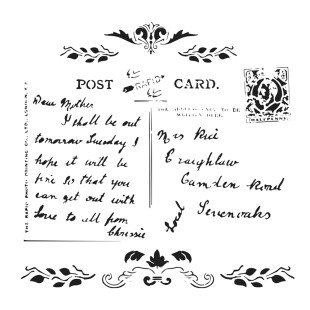 POST CARD.
RAPID
THE ADDRESS ONLY TO BE
WRITTEN HERE.
HALFPENNY
Dear Mother
I shall be out
tomorrow Tuesday I
hope it will be
fine so that you
can get out with
Love to all from
Chrissie
Mrs Rice
Craighlaw
Camden Road
Sevenoaks
Local
THE RAPID PHOTO PRINTING CO., LTD., LONDON, E.C.